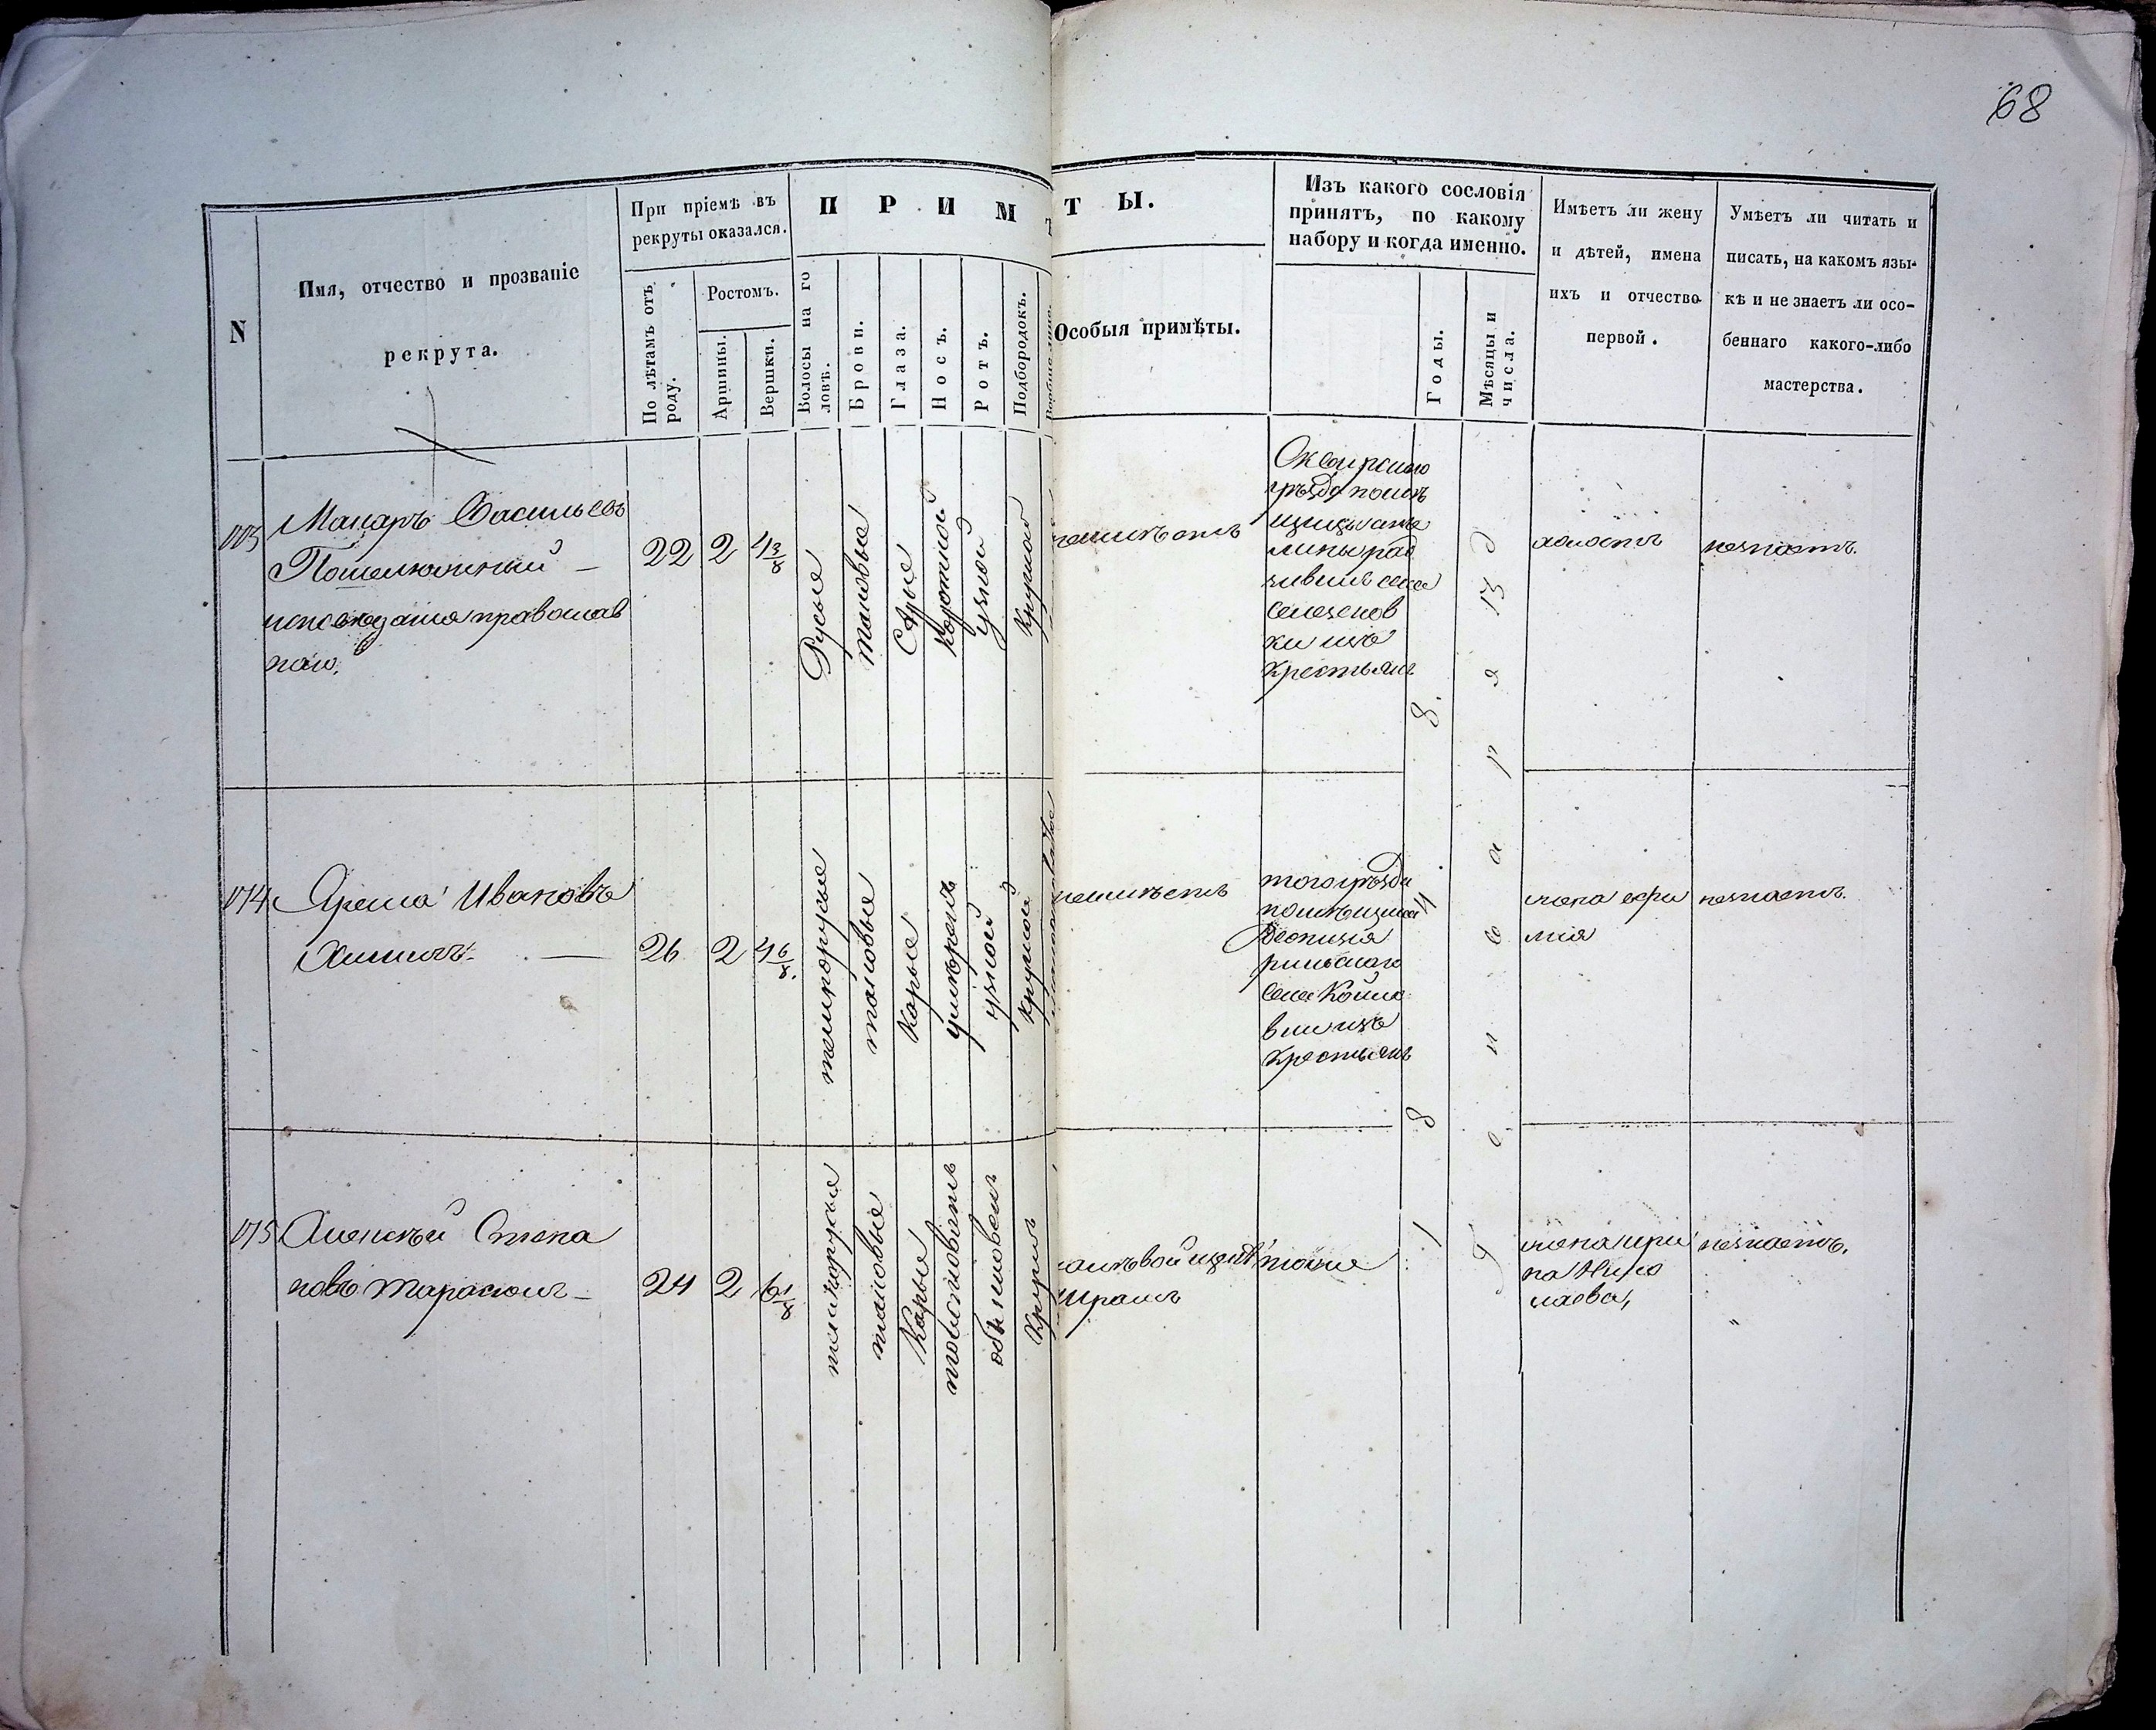 68
N
Имя, отчество и прозваніе
рекрута.
При пріемѣ въ
рекруты оказался.
По лѣтамъ отъ
роду.
Ростомъ.
Аршины.
Вершки.
П Р И М Ѣ Т Ы.
Волосы на го
ловѣ.
Брови.
Глаза.
Носъ.
Ротъ.
Подбородокъ.
Особыя примѣты.
Изъ какого сословія
принятъ, по какому
набору и когда именно.
Годы.
Мѣсяцы и
числа.
Имѣетъ ли жену
и дѣтей, имена
ихъ и отчество
первой.
Умѣетъ ли читать и
писать, на какомъ язы-
кѣ и не знаетъ ли осо-
беннаго какого-либо
мастерства.
Макаръ Васильевъ
исповѣданія православ
наго.
22
2
4 3/8
Русые
таковые
Сѣрые
Короткой
узкой
Круглой
неимѣетъ
уѣзда помѣ
щицы
села
ки изъ
крестьянъ
холостъ
незнаетъ.
174
Ярема Ивановъ
26
2
4 6/8
темнорусые
таковые
Карые
умѣренъ
узкой
круглой
неимѣетъ
того уѣзда
помѣщика
села
изъ
крестьянъ
жена Ефи
мія
незнаетъ.
175
Алексѣй Степа
новъ Тарасюкъ
24
2
6 1/8
темнорусые
таковые
Карые
толстоватъ
обыкновенъ
Круглъ
налѣвой щекѣ
шрамъ
тожъ
1 8 4 8.
9 Января 13 д
жена Ири
на Нико
лаева,
незнаетъ.